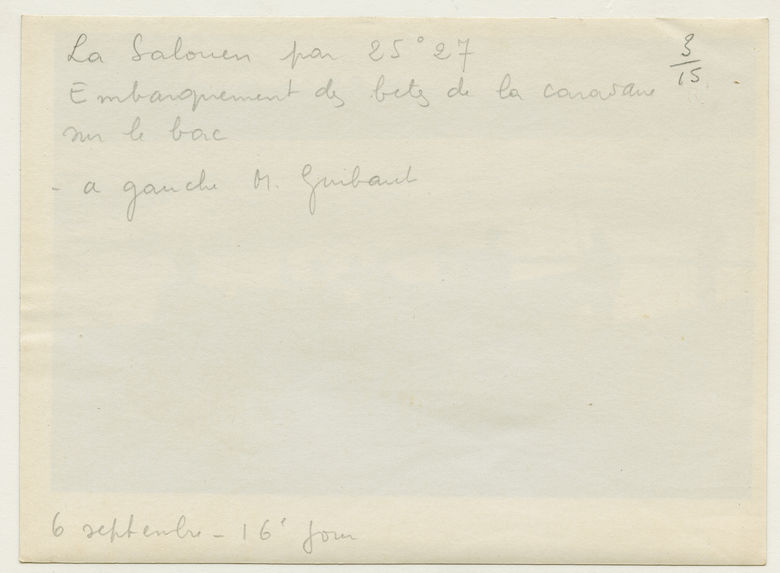 La Salouen par 25° 27
3/15
Embarquement des betes de la caravane
sur le bac
- a gauche M. Guibaut
6 septembre - 16e jour